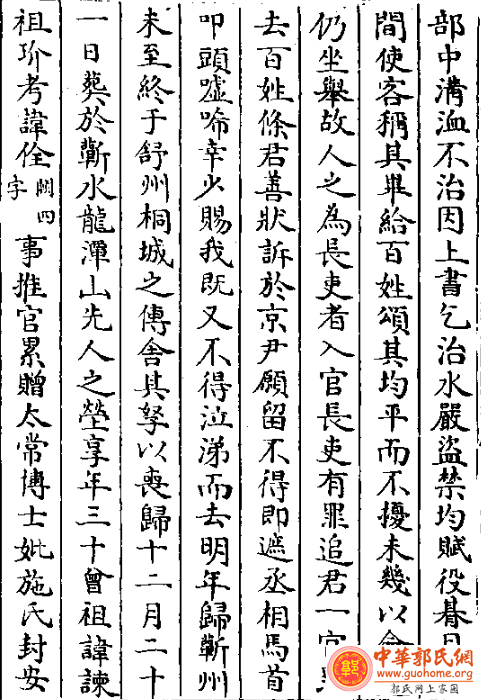 部中溝洫不治因上書乞治水嚴盜禁均賦役朞月
間使客稱其畢給百姓頌其均平而不擾未幾以
仍坐舉故人之為長吏者入官長吏有罪追君一官
去百姓條君善狀訴於京尹願留不得即遮丞相馬首
叩頭噓唏幸少賜我既又不得泣涕而去明年歸蘄州
未至終于舒州桐城之傳舍其孥以喪歸十二月二十
一日葬於蘄水龍潭山先人之塋享年三十曾祖諱諫
祖玠考諱佺闕四字事推官累贈太常博士妣施氏封安
中華郭氏網
www.guohome.org
郭氏网上家園